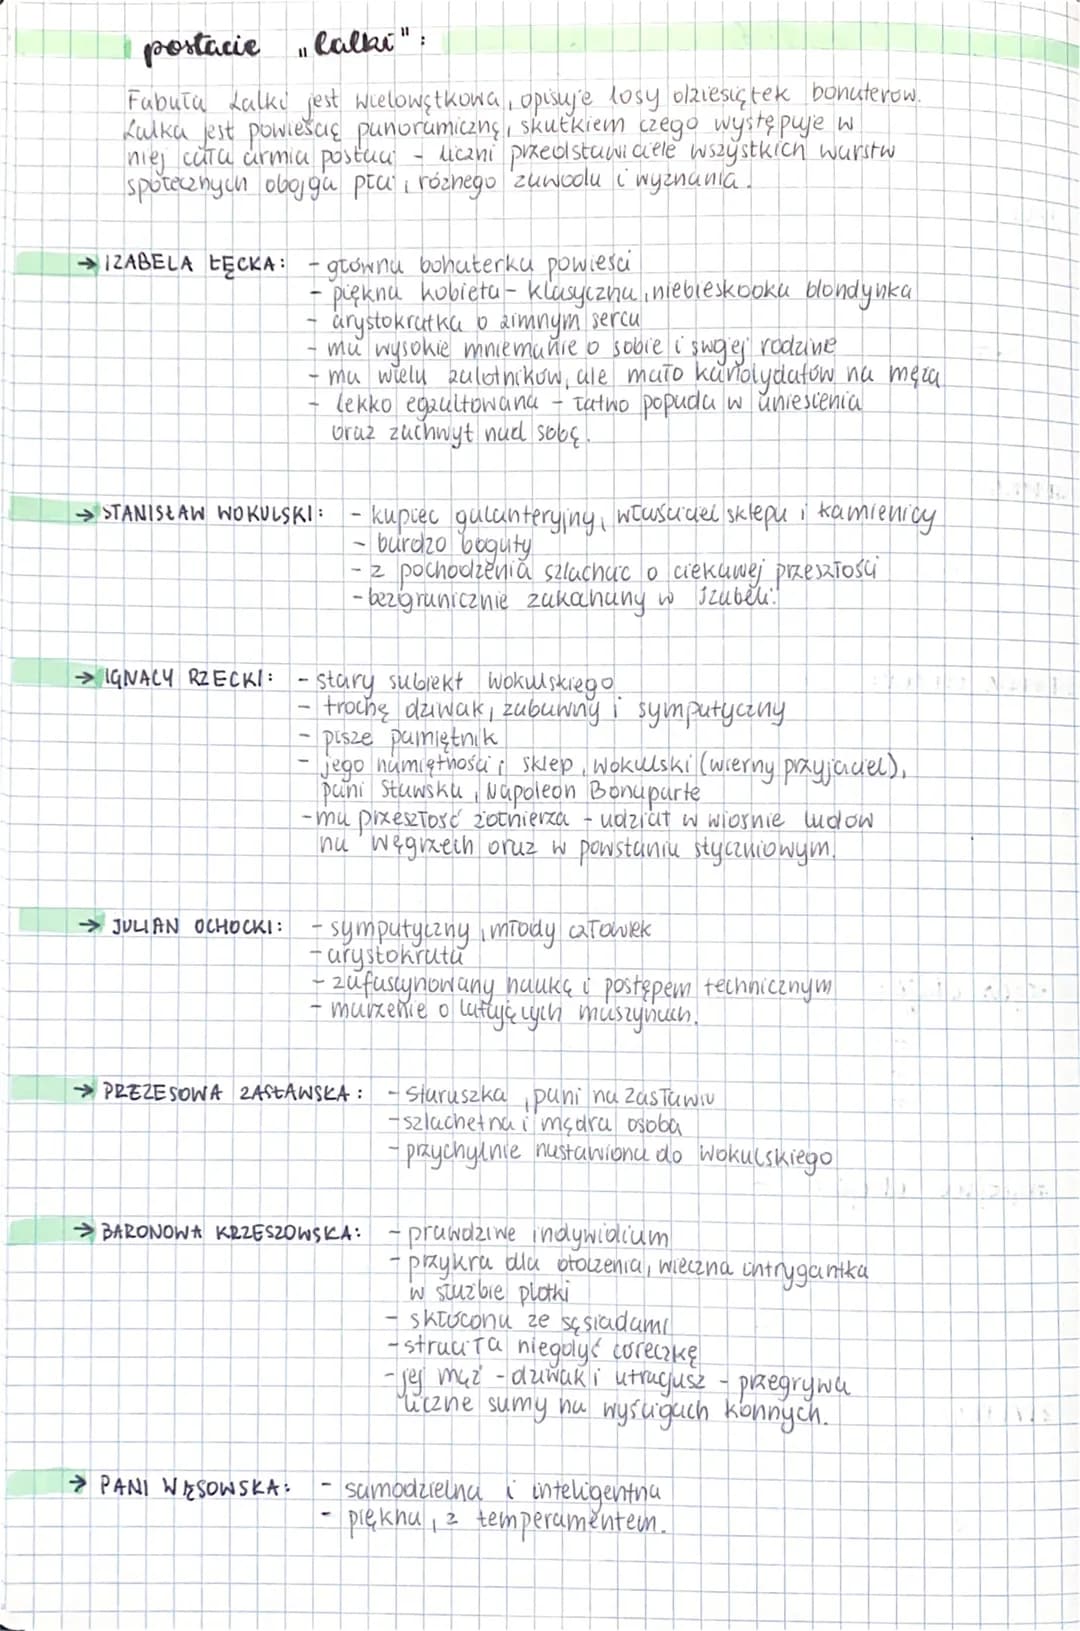 postacie „Lalki":
Fabuła Lalki jest wielowątkowa, opisuje losy dziesiątek bohaterów.
Lalka jest powieścią panoramiczną, skutkiem czego występuje w
niej cała armia postaci - liczni przedstawiciele wszystkich warstw
społecznych obojga płci, różnego zawodu i wyznania.
→ IZABELA ŁĘCKA: - główna bohaterka powieści
- piękna kobieta - klasyczna, niebieskooka blondynka
- arystokratka o zimnym sercu
- ma wysokie mniemanie o sobie i swojej rodzinie
- ma wielu zalotników, ale mało kandydatów na męża
- lekko egzaltowana - łatwo popada w uniesienia
oraz zachwyt nad sobą.
→ STANISŁAW WOKULSKI: - kupiec galanteryjny, właściciel sklepu i kamienicy
- bardzo bogaty
- z pochodzenia szlachcic o ciekawej przeszłości
- bezgranicznie zakochany w Izabeli.
→ IGNACY RZECKI: - stary subiekt Wokulskiego
- trochę dziwak, zabawny i sympatyczny
- pisze pamiętnik
- jego namiętności: sklep, Wokulski (wierny przyjaciel),
pani Stawska, Napoleon Bonaparte
- ma przeszłość żołnierza - udział w wiośnie ludów
na Węgrzech oraz w powstaniu styczniowym.
→ JULIAN OCHOCKI: - sympatyczny, młody człowiek
- arystokrata
- zafascynowany nauką i postępem technicznym
- marzenie o latających maszynach.
→ PREZESOWA ZASŁAWSKA: - staruszka, pani na Zasławiu
- szlachetna i mądra osoba
- przychylnie nastawiona do Wokulskiego
→ BARONOWA KRZESZOWSKA: - prawdziwe indywidium
- przykra dla otoczenia, wieczna intrygantka
w służbie plotki
- skłócona ze sąsiadami
- straciła niegdyś córeczkę
- jej mąż - dziwak i utracjusz - przegrywa
liczne sumy na wyścigach konnych.
→ PANI WĄSOWSKA: - samodzielna i inteligentna
- piękna, z temperamentem.